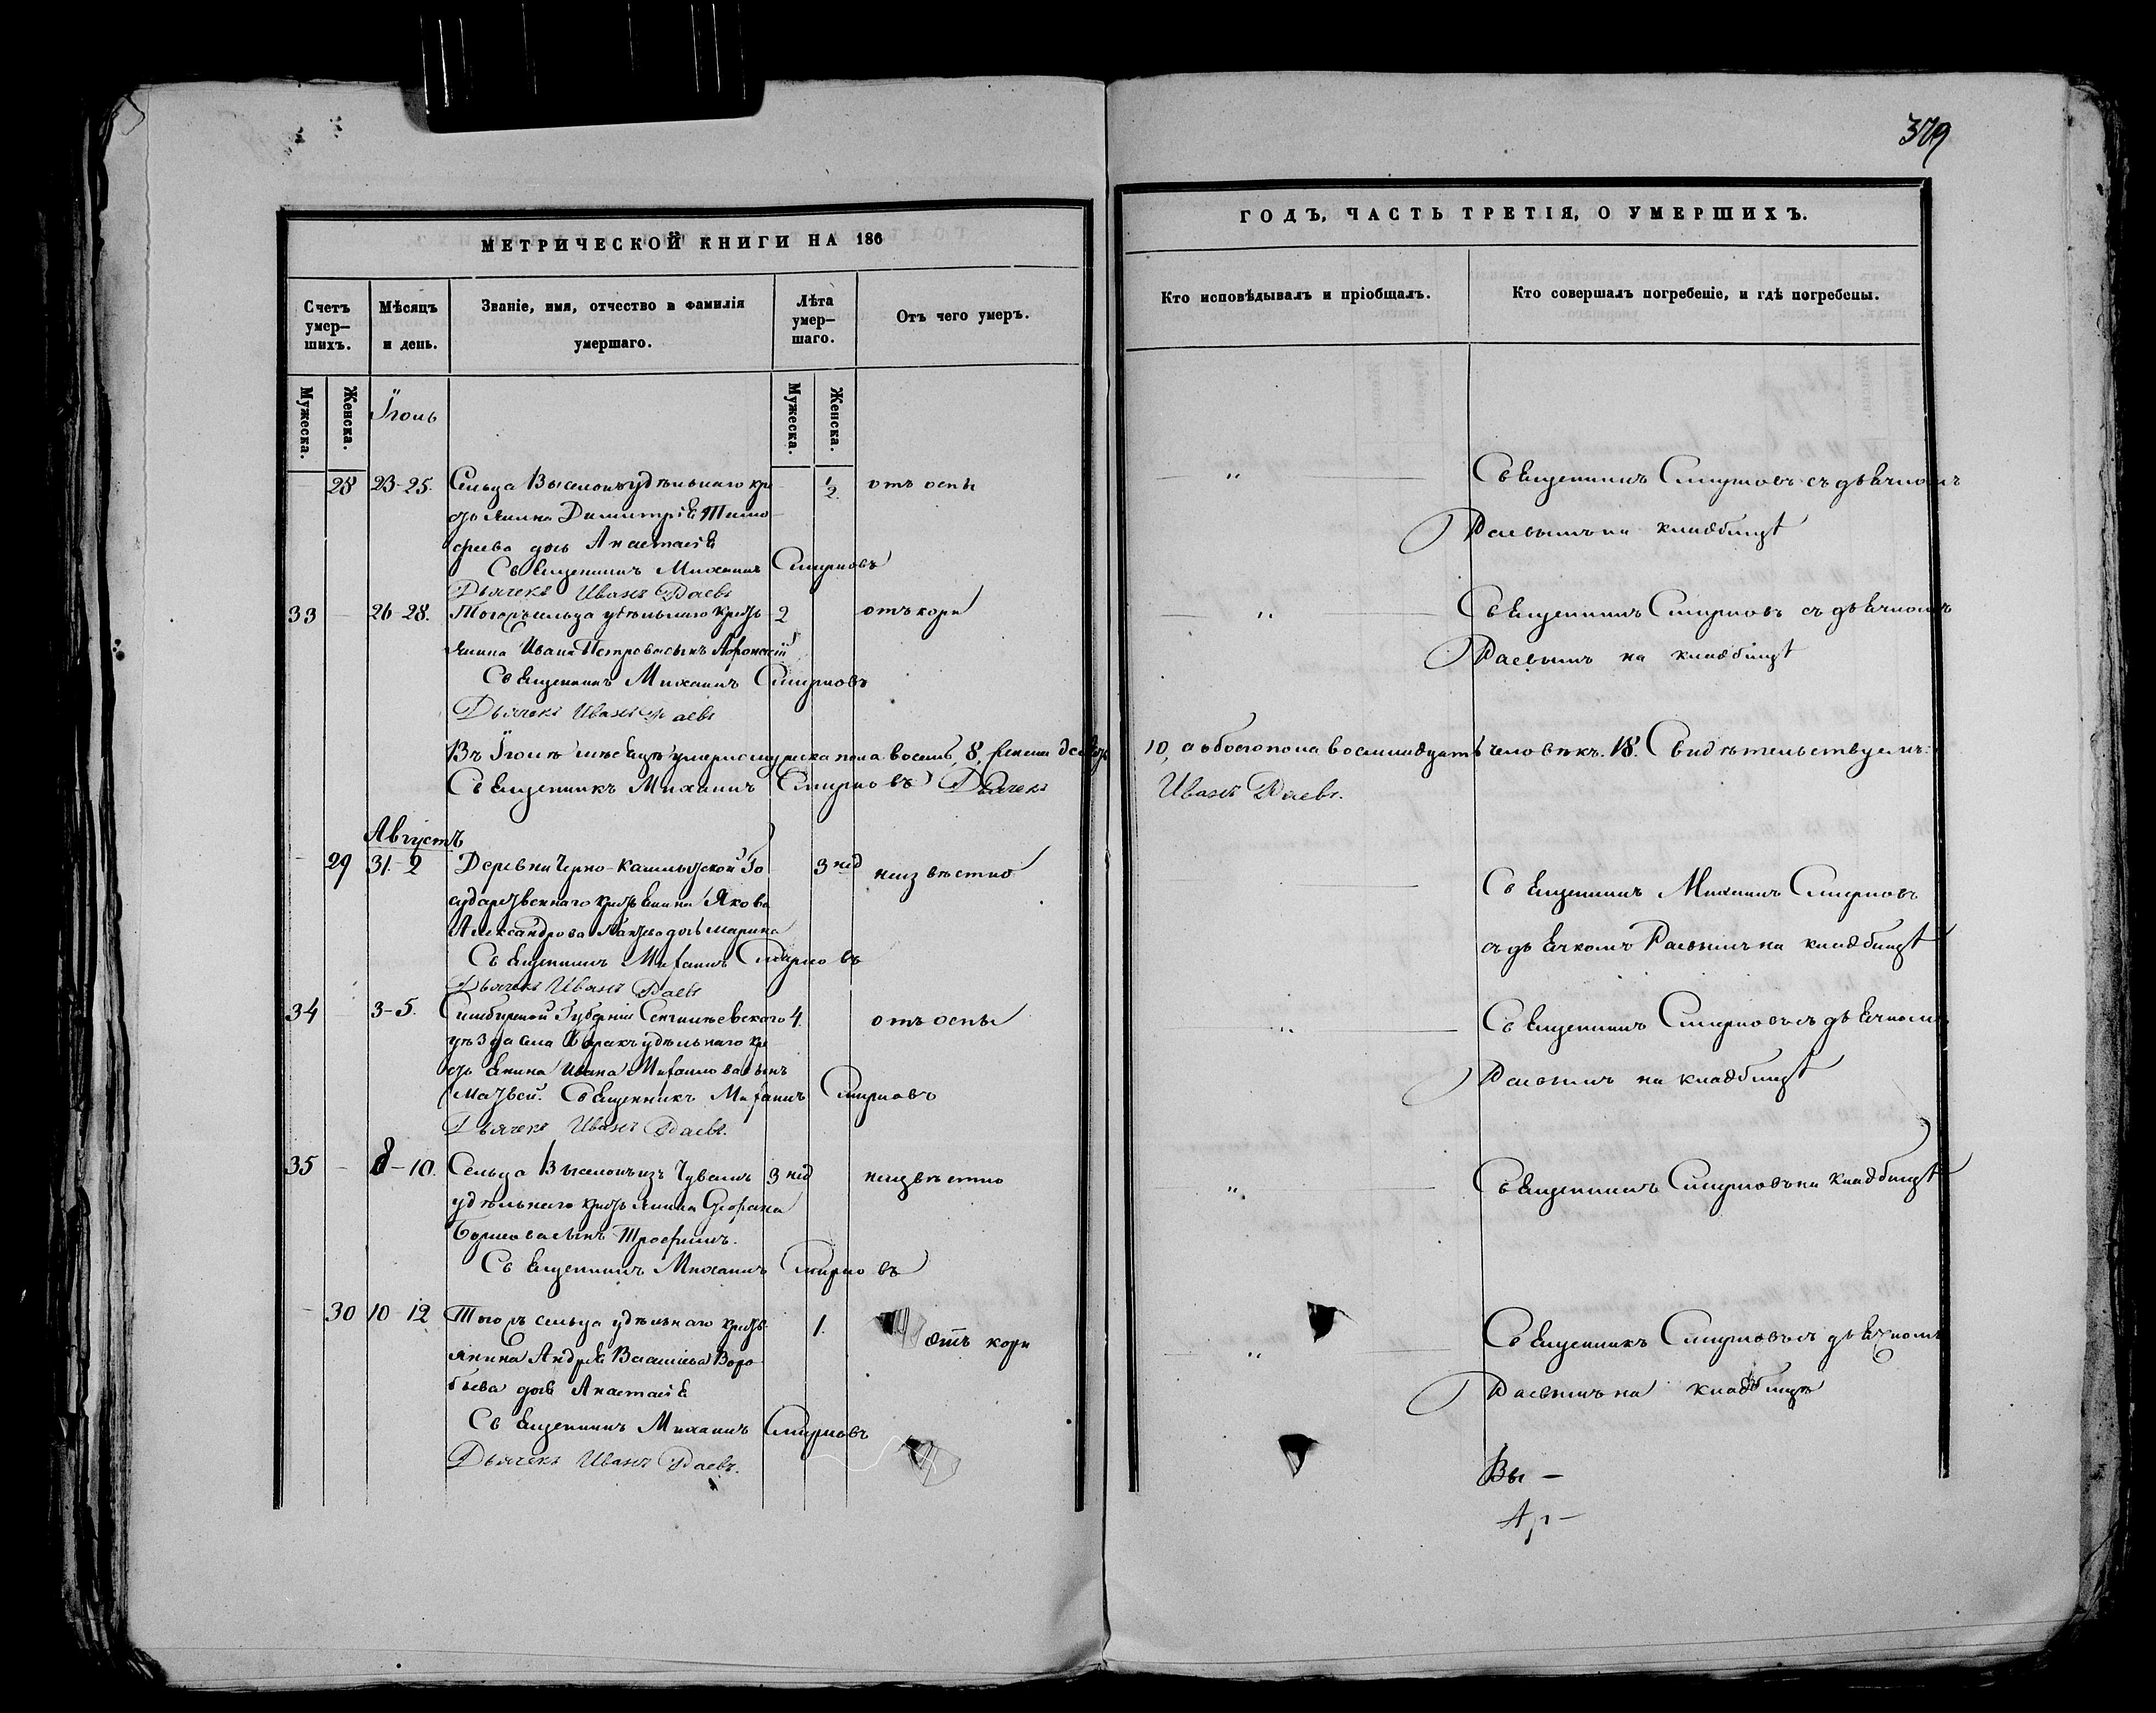 379
МЕТРИЧЕСКОЙ КНИГИ НА 186
ГОДЪ, ЧАСТЬ ТРЕТІЯ, О УМЕРШИХЪ.
Счетъ умер–шихъ.
Мѣсяцъ и день.
Званіе, имя, отчество и фамилія умершаго.
Лѣта умер–шаго.
Отъ чего умеръ.
Кто исповѣдывалъ и пріобщалъ.
Кто совершалъ погребеніе, и гдѣ погребены.
Мужеска.
Женска.
Мужеска.
Женска.
Іюль
28 23-25. Сельца Выселокъ удѣльнаго кре 1/2 отъ оспы
стьянина Димитрія Тимо
феева дочь Анастасія
Священникъ Михаилъ Смирновъ
Дьячекъ Иванъ Раевъ
Священникъ Смирновъ съ дьячкомъ
Раевымъ на кладбищѣ
33 26-28. Тогожъ сельца удѣльнаго кресть 2 отъ кори
янина Ивана Петрова сынъ Афонасій
Священникъ Михаилъ Смирновъ
Дьячекъ Иванъ Раевъ
Священникъ Смирновъ съ дьячкомъ
Раевымъ на кладбищѣ
Въ Іюлѣ мѣсяцѣ умерло мужеска пола восемь, 8, женска десять 10, а обоего пола восмнадцать человѣкъ. 18. Свидѣтельствуемъ:
Священникъ Михаилъ Смирновъ Дьячекъ Иванъ Раевъ.
Августъ
29 31-2 Деревни Черно- Го 3 нед неизвѣстно
сударственнаго крестьянина Якова
Александрова дочь Марина
Священникъ Михаилъ Смирновъ
Дьячекъ Иванъ Раевъ
Священникъ Михаилъ Смирновъ
съ дьячкомъ Раевымъ на кладбищѣ
34 3-5. Симбирской Губерніи Сенгилѣевскаго 4. отъ оспы
уѣзда села удѣльнаго кре
стьянина Ивана Михаилова сынъ
Матвей. Священникъ Михаилъ Смирновъ
Дьячекъ Иванъ Раевъ.
Священникъ Смирновъ съ дьячкомъ
Раевымъ на кладбищѣ
35 8-10. Сельца Выселокъ изъ Чувашъ 3 нед неизвѣстно
удѣльнаго крестьянина Стефана
сынъ Трофимъ.
Священникъ Михаилъ Смирновъ
Священникъ Смирновъ на кладбищѣ
30 10-12 Тогожъ сельца удѣльнаго кресть 1. отъ кори
янина Андрея Васильева Воро
бьева дочь Анастасія
Священникъ Михаилъ Смирновъ
Дьячекъ Иванъ Раевъ.
Священникъ Смирновъ съ дьячкомъ
Раевымъ на кладбищѣ
Вы –